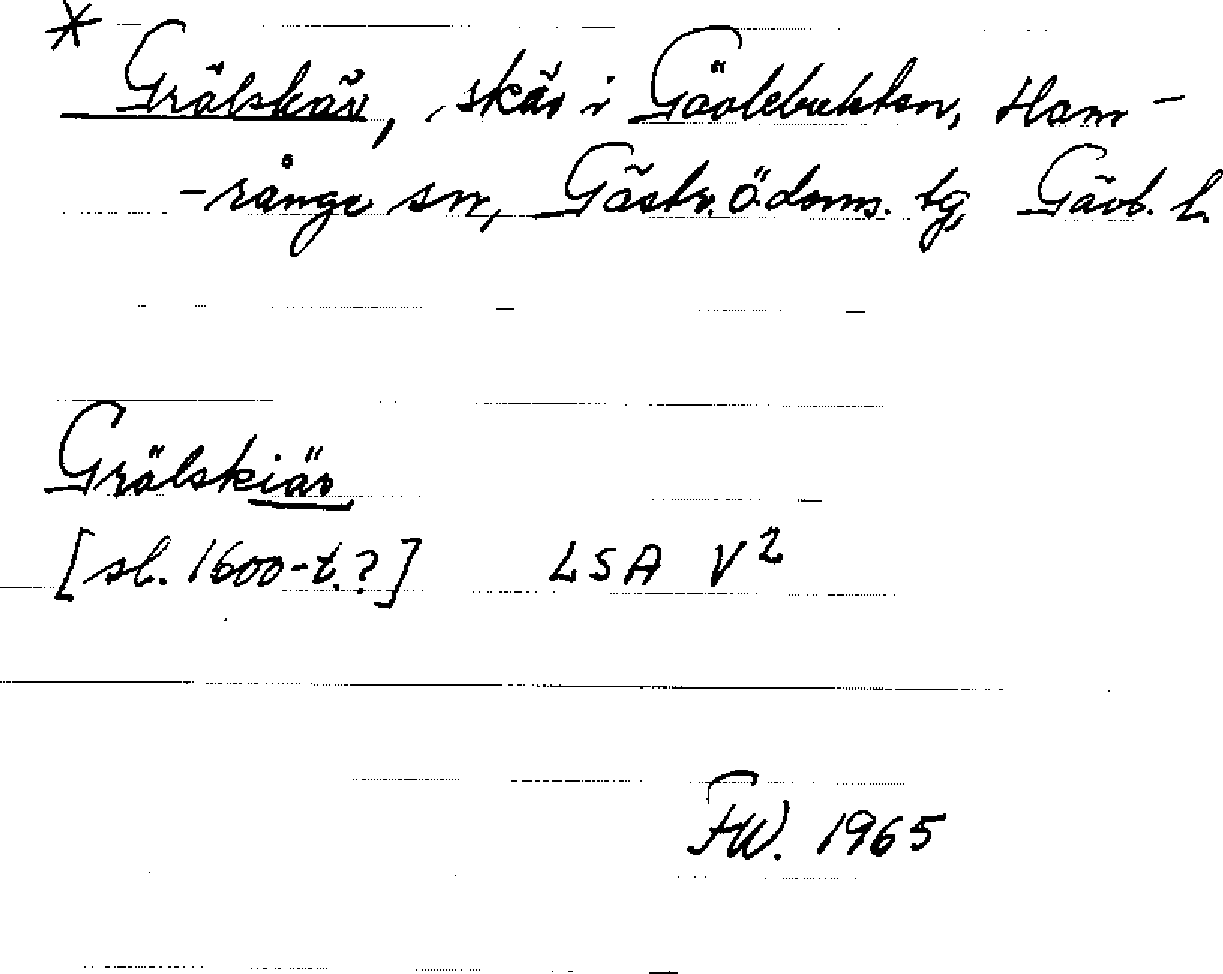 * Grälskär, skär i Gävlebukten, Ham-
-rånge sn, Gästr. ö. doms. tg, Gävb. l.
Grälskiär
[sl. 1600-t.?] LSA V²
FW. 1965